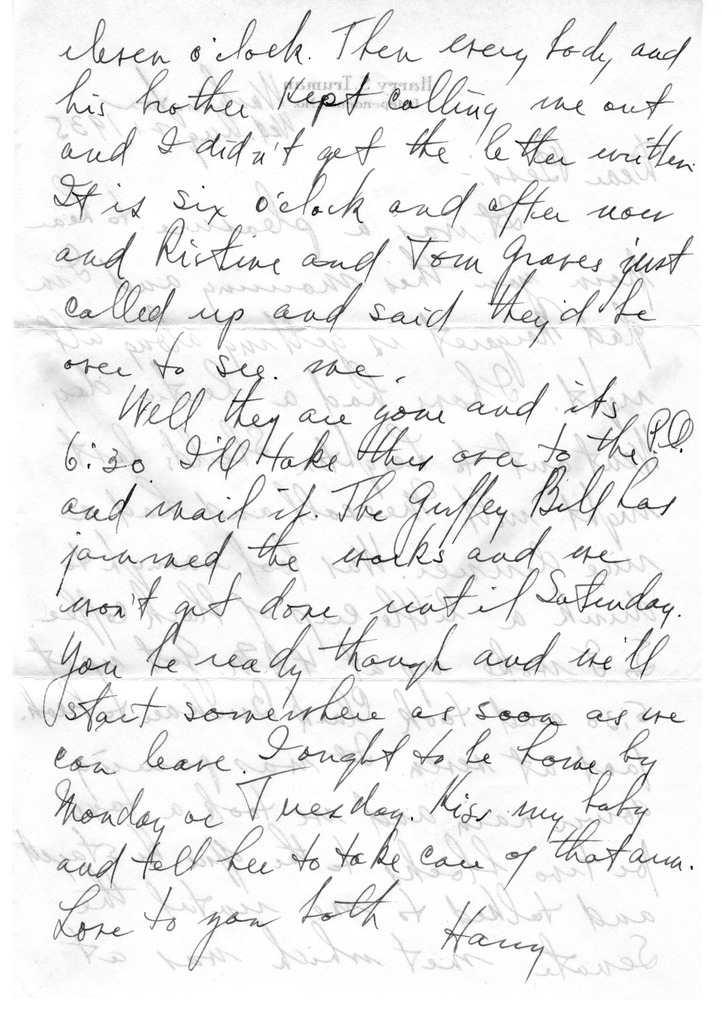 eleven o'clock. Then every body and
his brother kept calling me out
and I didn't get the letter written.
It is six o'clock and after now
and Ristine and Tom Graves just
called up and said they'd be
over to see me.
Well they are gone and its
6:30 I'll take this over to the P.O.
and mail it. The Guffey Bill has
jammed the works and we
won't get done until Saturday.
You be ready though and we'll
start somewhere as soon as we
can leave. I ought to be home by
Monday or Tuesday. Kiss my baby
and tell her to take care of that arm.
Love to you both
Harry